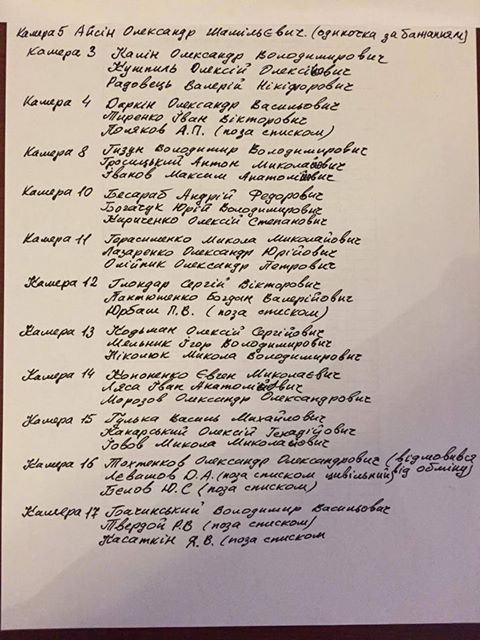 Камера 5 Айсін Олександр Шамільєвич. (одиночка за бажанням)
Камера 3 Калін Олександр Володимирович
Кушпиль Олексій Олексійович
Радовець Валерій Нікіфорович
Камера 4 Даркін Олександр Васильович
Тиренко Іван Вікторович
Поляков А.П. (поза списком)
Камера 8 Гизун Володимир Володимирович
Гросицький Антон Миколайович
Іванов Максим Анатолійович
Камера 10 Бесараб Андрій Федорович
Богачук Юрій Володимирович
Кириченко Олексій Степанович
Камера 11 Герасименко Микола Миколайович
Лазаренко Олександр Юрійович
Олійник Олександр Петрович
Камера 12 Глондар Сергій Вікторович
Пантюшенко Богдан Валерійович
Юрбаш П.В. (поза списком)
Камера 13 Кодьман Олексій Сергійович
Мельник Ігор Володимирович
Ніколюк Микола Володимирович
Камера 14 Кононенко Євген Миколаєвич
Ляса Іван Анатолійович
Морозов Олександр Олександрович
Камера 15 Гулька Василь Михайлович
Какарський Олексій Генадійович
Говов Микола Миколайович
Камера 16 Тохтенков Олександр Олександрович (відмовився
Лєвашов Ю.А. (поза списком цивільний) від обміну)
Бєлов Ю.С (поза списком)
Камера 17 Бачинський Володимир Васильович
Твердой Р.В (поза списком)
Касаткін Я.В. (поза списком